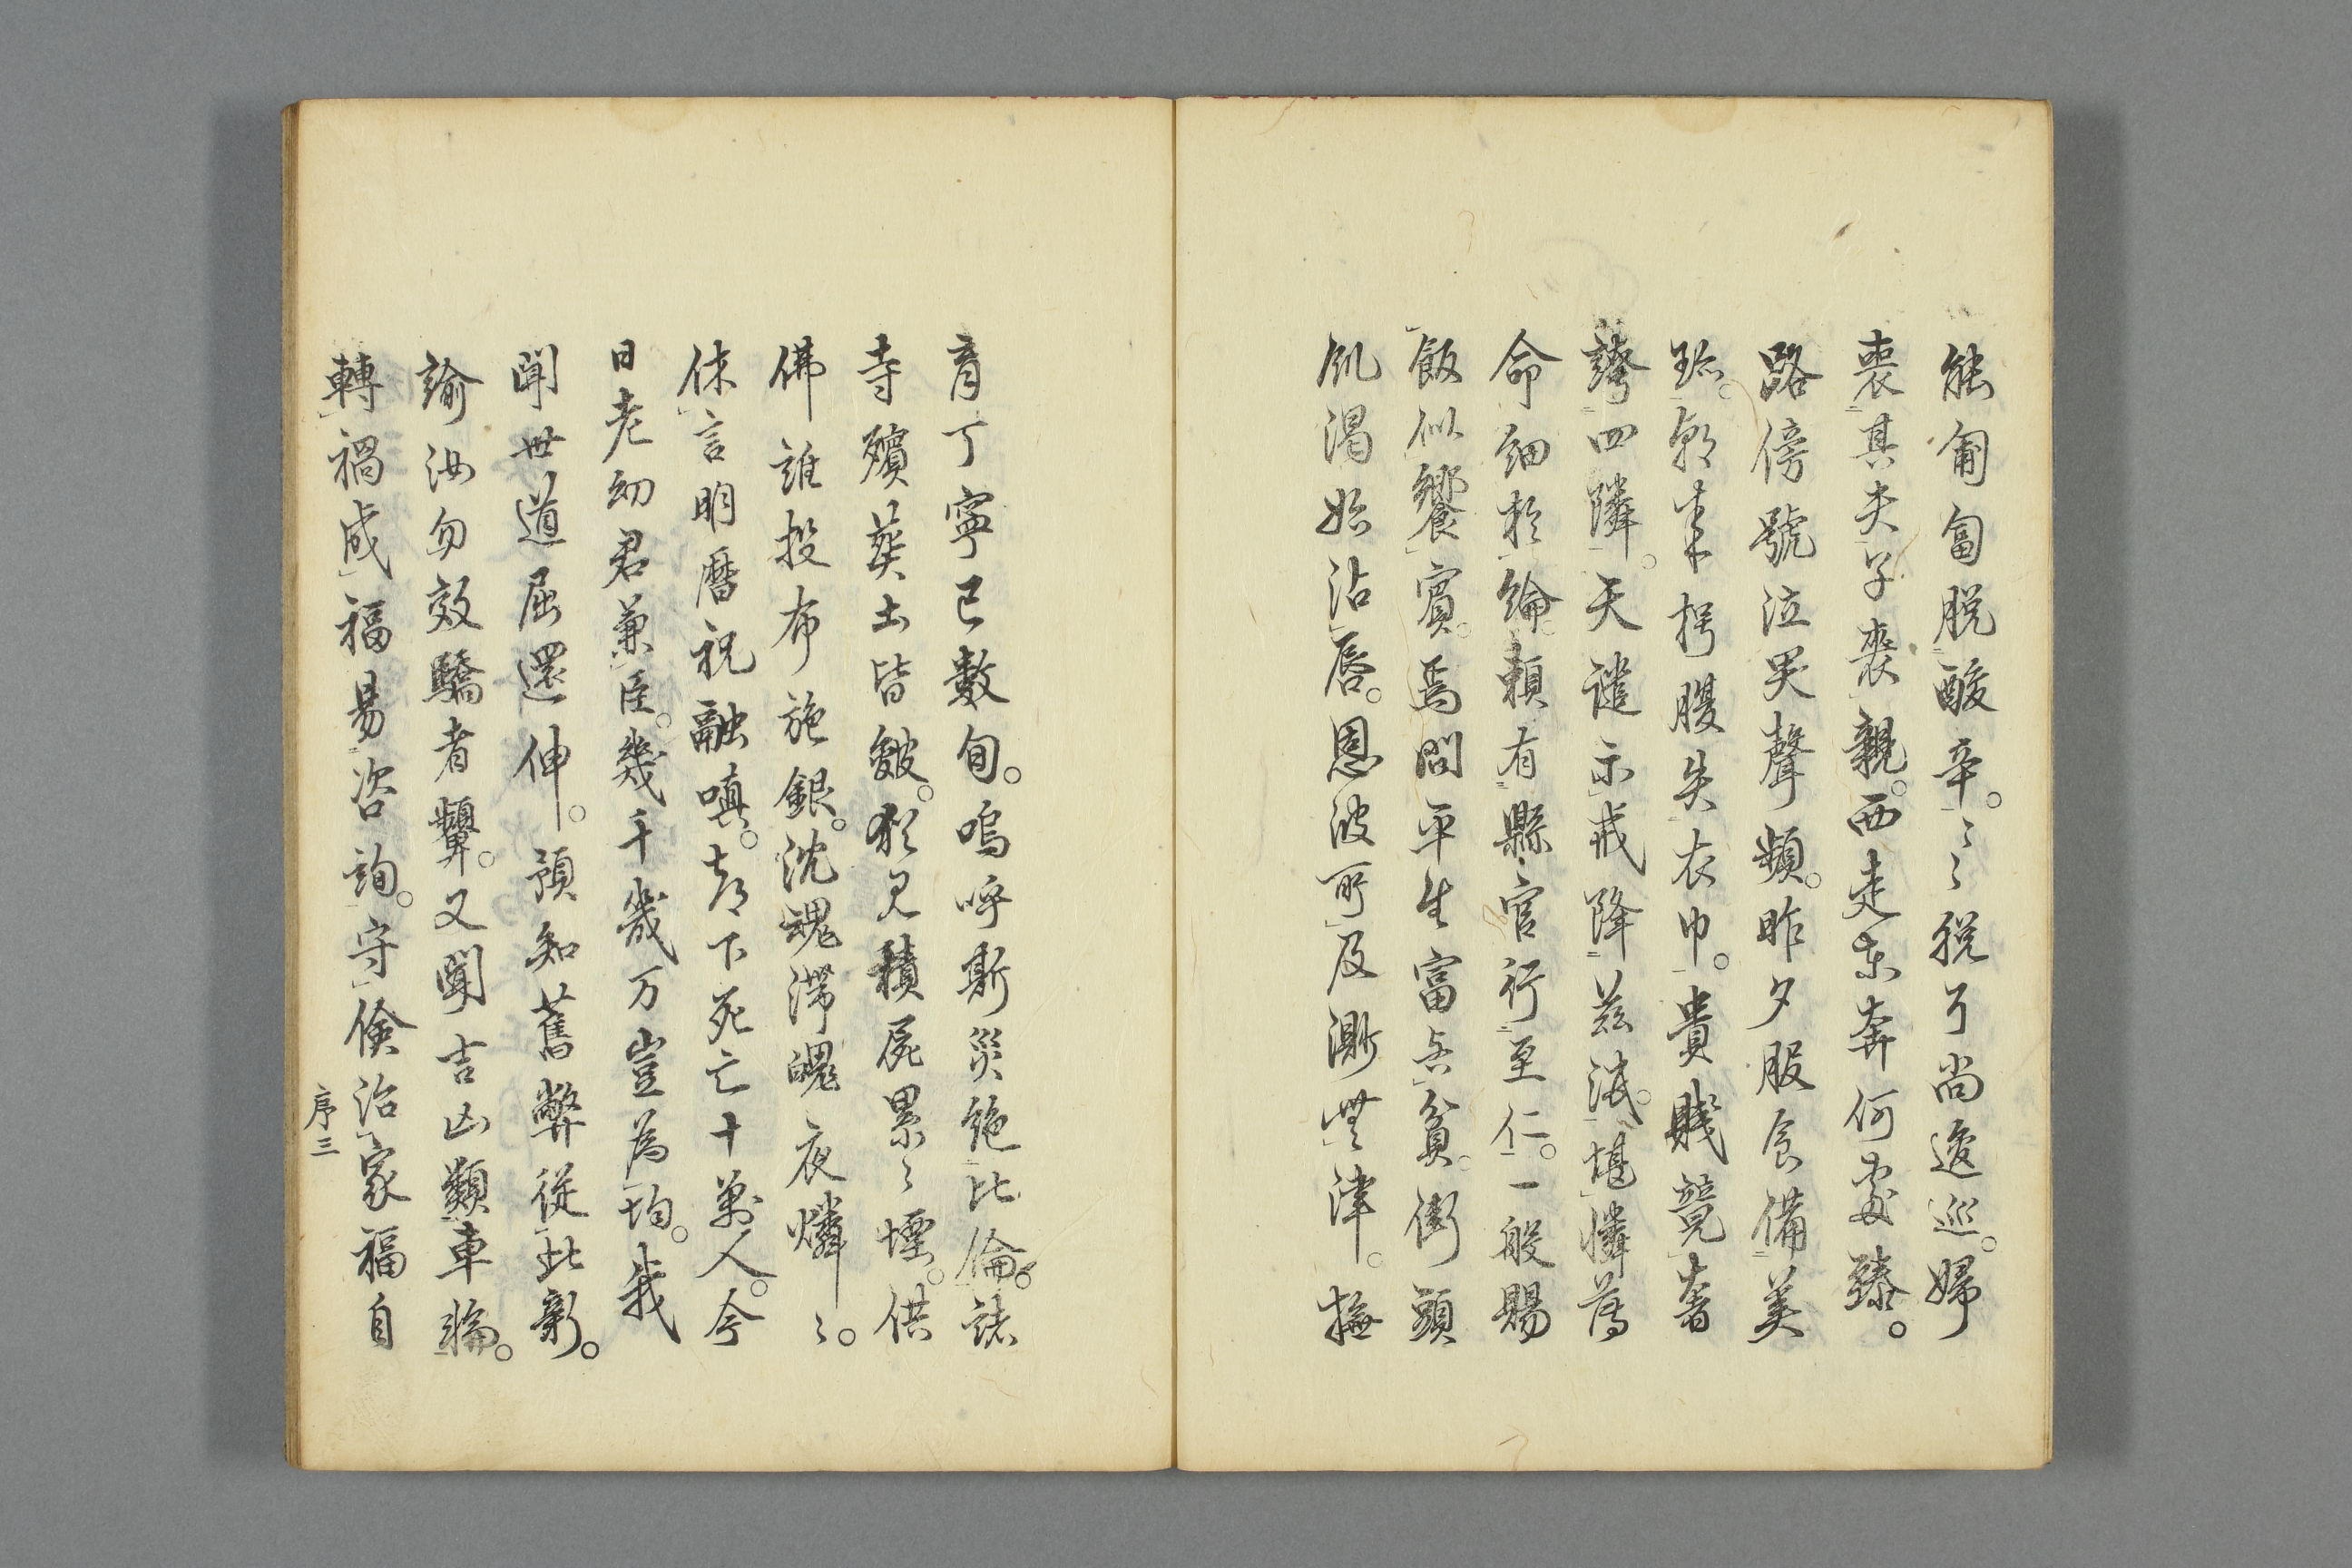 能匍匐脱酸辛。〻〻脱了尚逡巡。婦
喪其夫子喪親。西走東奔何處臻。
路傍號泣哭聲頻。昨夕服食備美
珎。朝來枵腹失衣巾。貴賤競奢
誇四隣。天譴示戒降茲災。堪憐落
命細於綸。頼有縣官行至仁。一般賜
飯似饗賓。焉問平生富与貧。街頭
飢渇始沾唇。恩波所及澌無津。撫
育丁寧已數旬。嗚呼斯災絶比倫。諸
寺殯葬土皆皴。愁見積屍累〻堙。供
佛誰投布施銀。沈魂滞魄夜燐〻。
休言明暦祝融嗔。都下死亡十萬人。今
日老幼君兼臣。幾千幾万豈為均。我
聞世道屈還伸。預知舊弊從此新。
諭汝勿效驕者顰。又聞吉凶類車輪。
轉禍成福易咨詢。守儉治家福自
序三